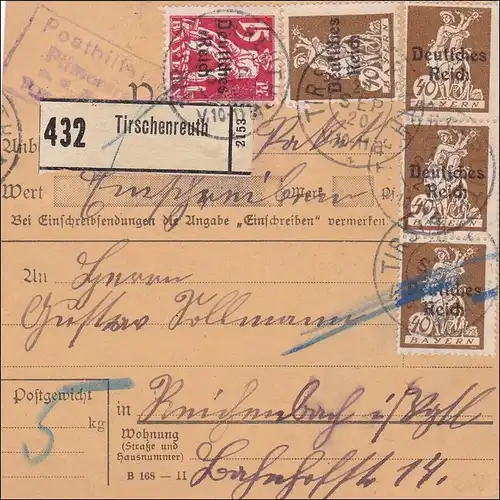 Posthilfs
15 Deutsches Reich BAYERN
Deutsches Reich 40 BAYERN
Deutsches Reich 40 BAYERN
432 Tirschenreuth 2153
Deutsches Reich 40
Wert Einschreiben Wert
Bei Einschreibsendungen die Angabe „Einschreiben" vermerken.
An Herrn
Gustav Vollmann
Deutsches Reich 40 BAYERN
Postgewicht
5 kg
in Reichenbach i/Vgtl
Wohnung
(Straße und
Hausnummer)
Bahnhofstr 14.
B 168 — II